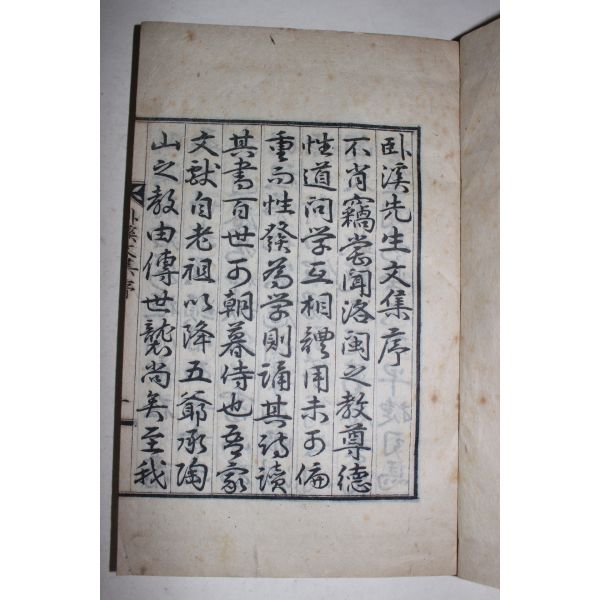 臥溪先生文集序
不肖竊嘗聞洛閩之教尊德
性道問学互相體用未可偏
重而性發為学則誦其詩讀
其書百世可朝暮侍也吾家
文献自老祖以降五爺承陶
山之教由傳世襲尚矣至我
臥溪文集序